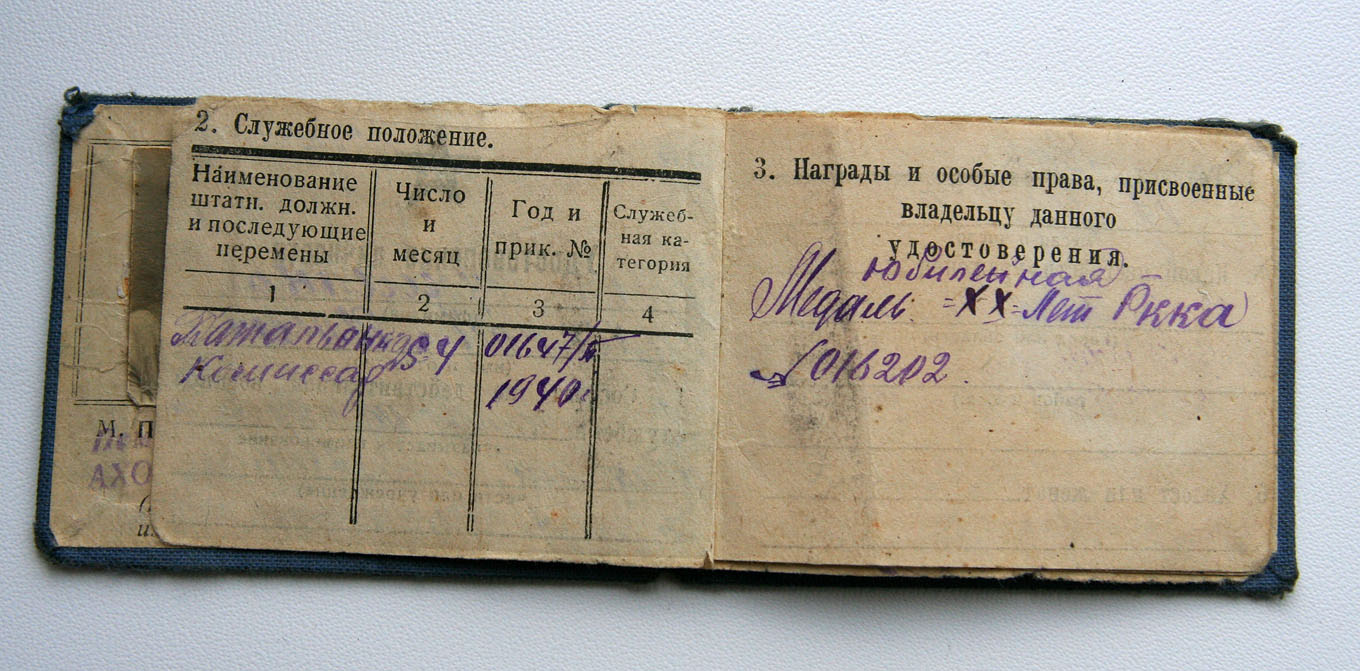 2. Служебное положение.
Наименование
штатн. должн.
и последующие
перемены
Число
и
месяц
Год и
прик. №
Служеб-
ная ка-
тегория
1 2 3 4
Батальонкой 15-4 01647/п
Комиссар 1940.
М. П
АХО
3. Награды и особые права, присвоенные
владельцу данного
удостоверения.
Юбилейная
Медаль =XX= Лет Ркка
№016202.